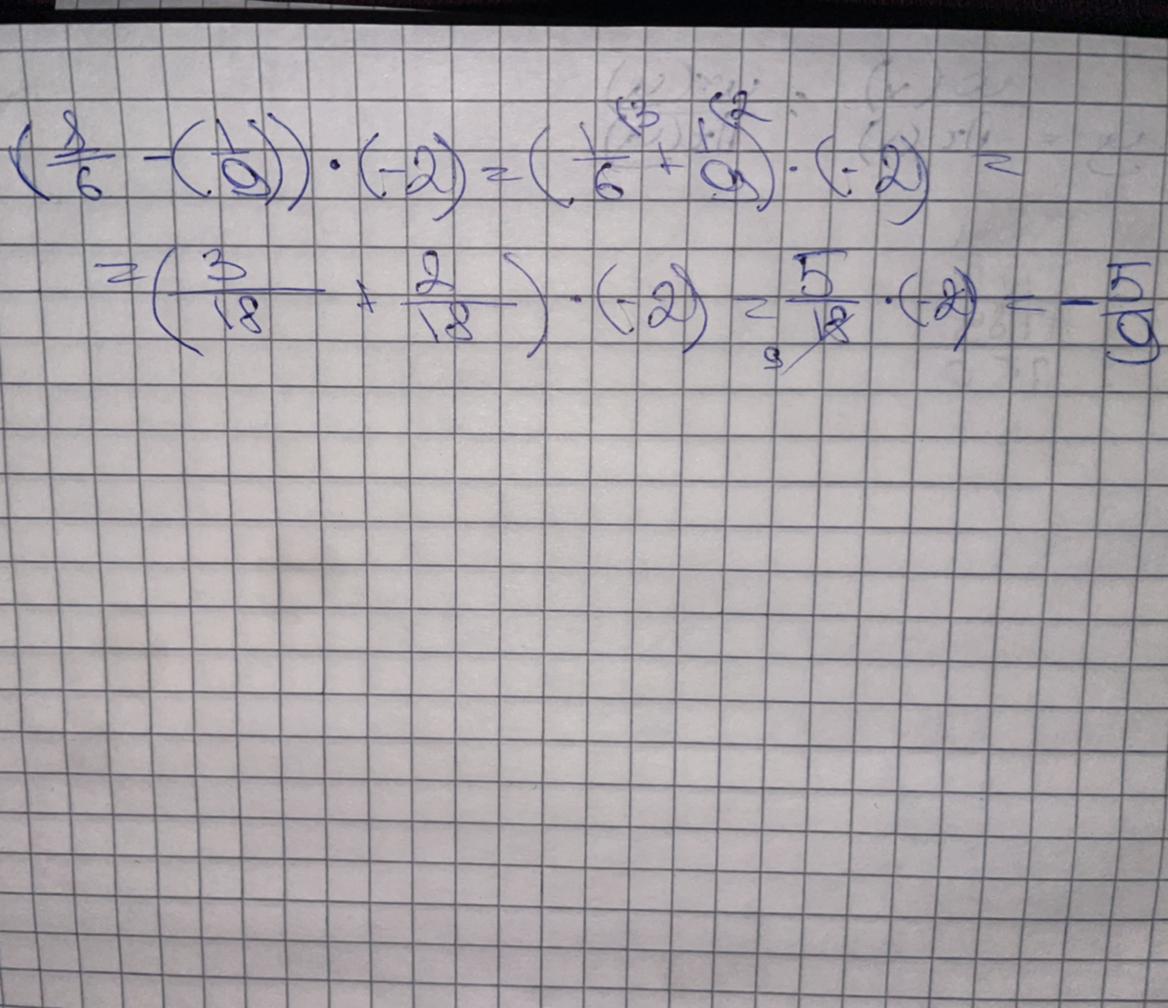 (1/6 - (1/9)) · (-2) = (1/6 + 1/9) · (-2) =
= (3/18 + 2/18) · (-2) = 5/18 · (-2) = - 5/9